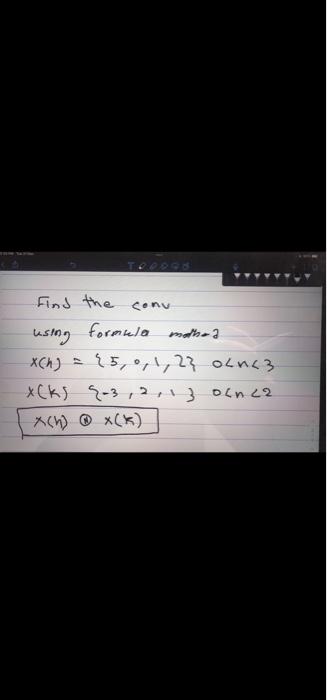 Find the conv
using formula method
x(n) = {5, 0, 1, 2} 0<n<3
x(k) {-3, 2, 1} 0<n<2
x(n) ⊛ x(k)